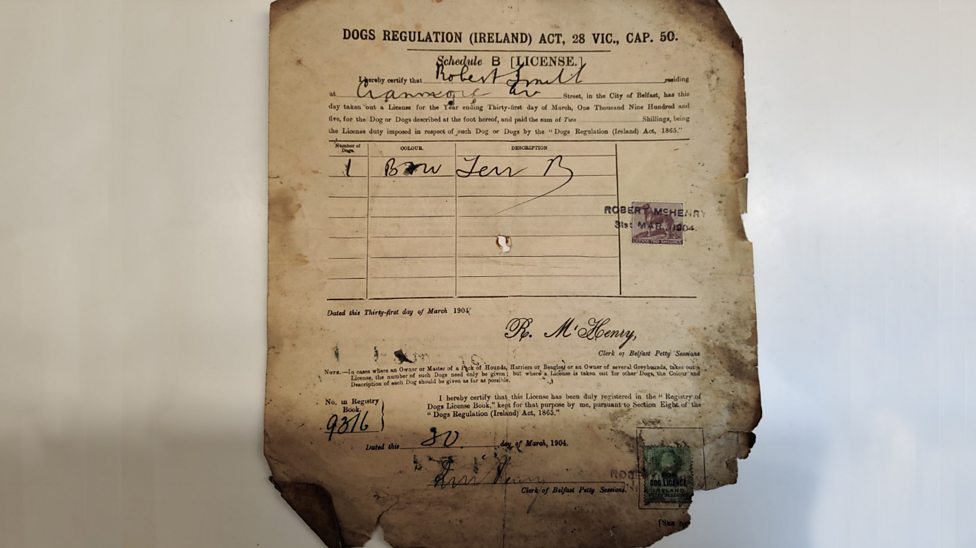 DOGS REGULATION (IRELAND) ACT, 28 VIC., CAP. 50.
Schedule B [LICENSE.]
I hereby certify that Robert Smith residing
at Cranmore Av Street, in the City of Belfast, has this
day taken out a License for the Year ending Thirty-first day of March, One Thousand Nine Hundred and
five, for the Dog or Dogs described at the foot hereof, and paid the sum of Two Shillings, being
the License duty imposed in respect of such Dog or Dogs by the "Dogs Regulation (Ireland) Act, 1865."
Number of Dogs. COLOUR. DESCRIPTION
1 Terr B
ROBERT McHENRY
31st MAR. 1904.
LICENCE TWO SHILLINGS
Dated this Thirty-first day of March 1904
R. McHenry,
Clerk of Belfast Petty Sessions
NOTE.—In cases where an Owner or Master of a Pack of Hounds, Harriers or Beagles, or an Owner of several Greyhounds, takes out a
License, the number of such Dogs need only be given; but where a License is taken out for other Dogs, the Colour and
Description of each Dog should be given as far as possible.
I hereby certify that this License has been duly registered in the "Registry of
Dogs License Book," kept for that purpose by me, pursuant to Section Eight of the
"Dogs Regulation (Ireland) Act, 1865."
No. in Registry
Book,
9376
Dated this 30 day of March, 1904.
Clerk of Belfast Petty Sessions.
DOG LICENCE
IRELAND